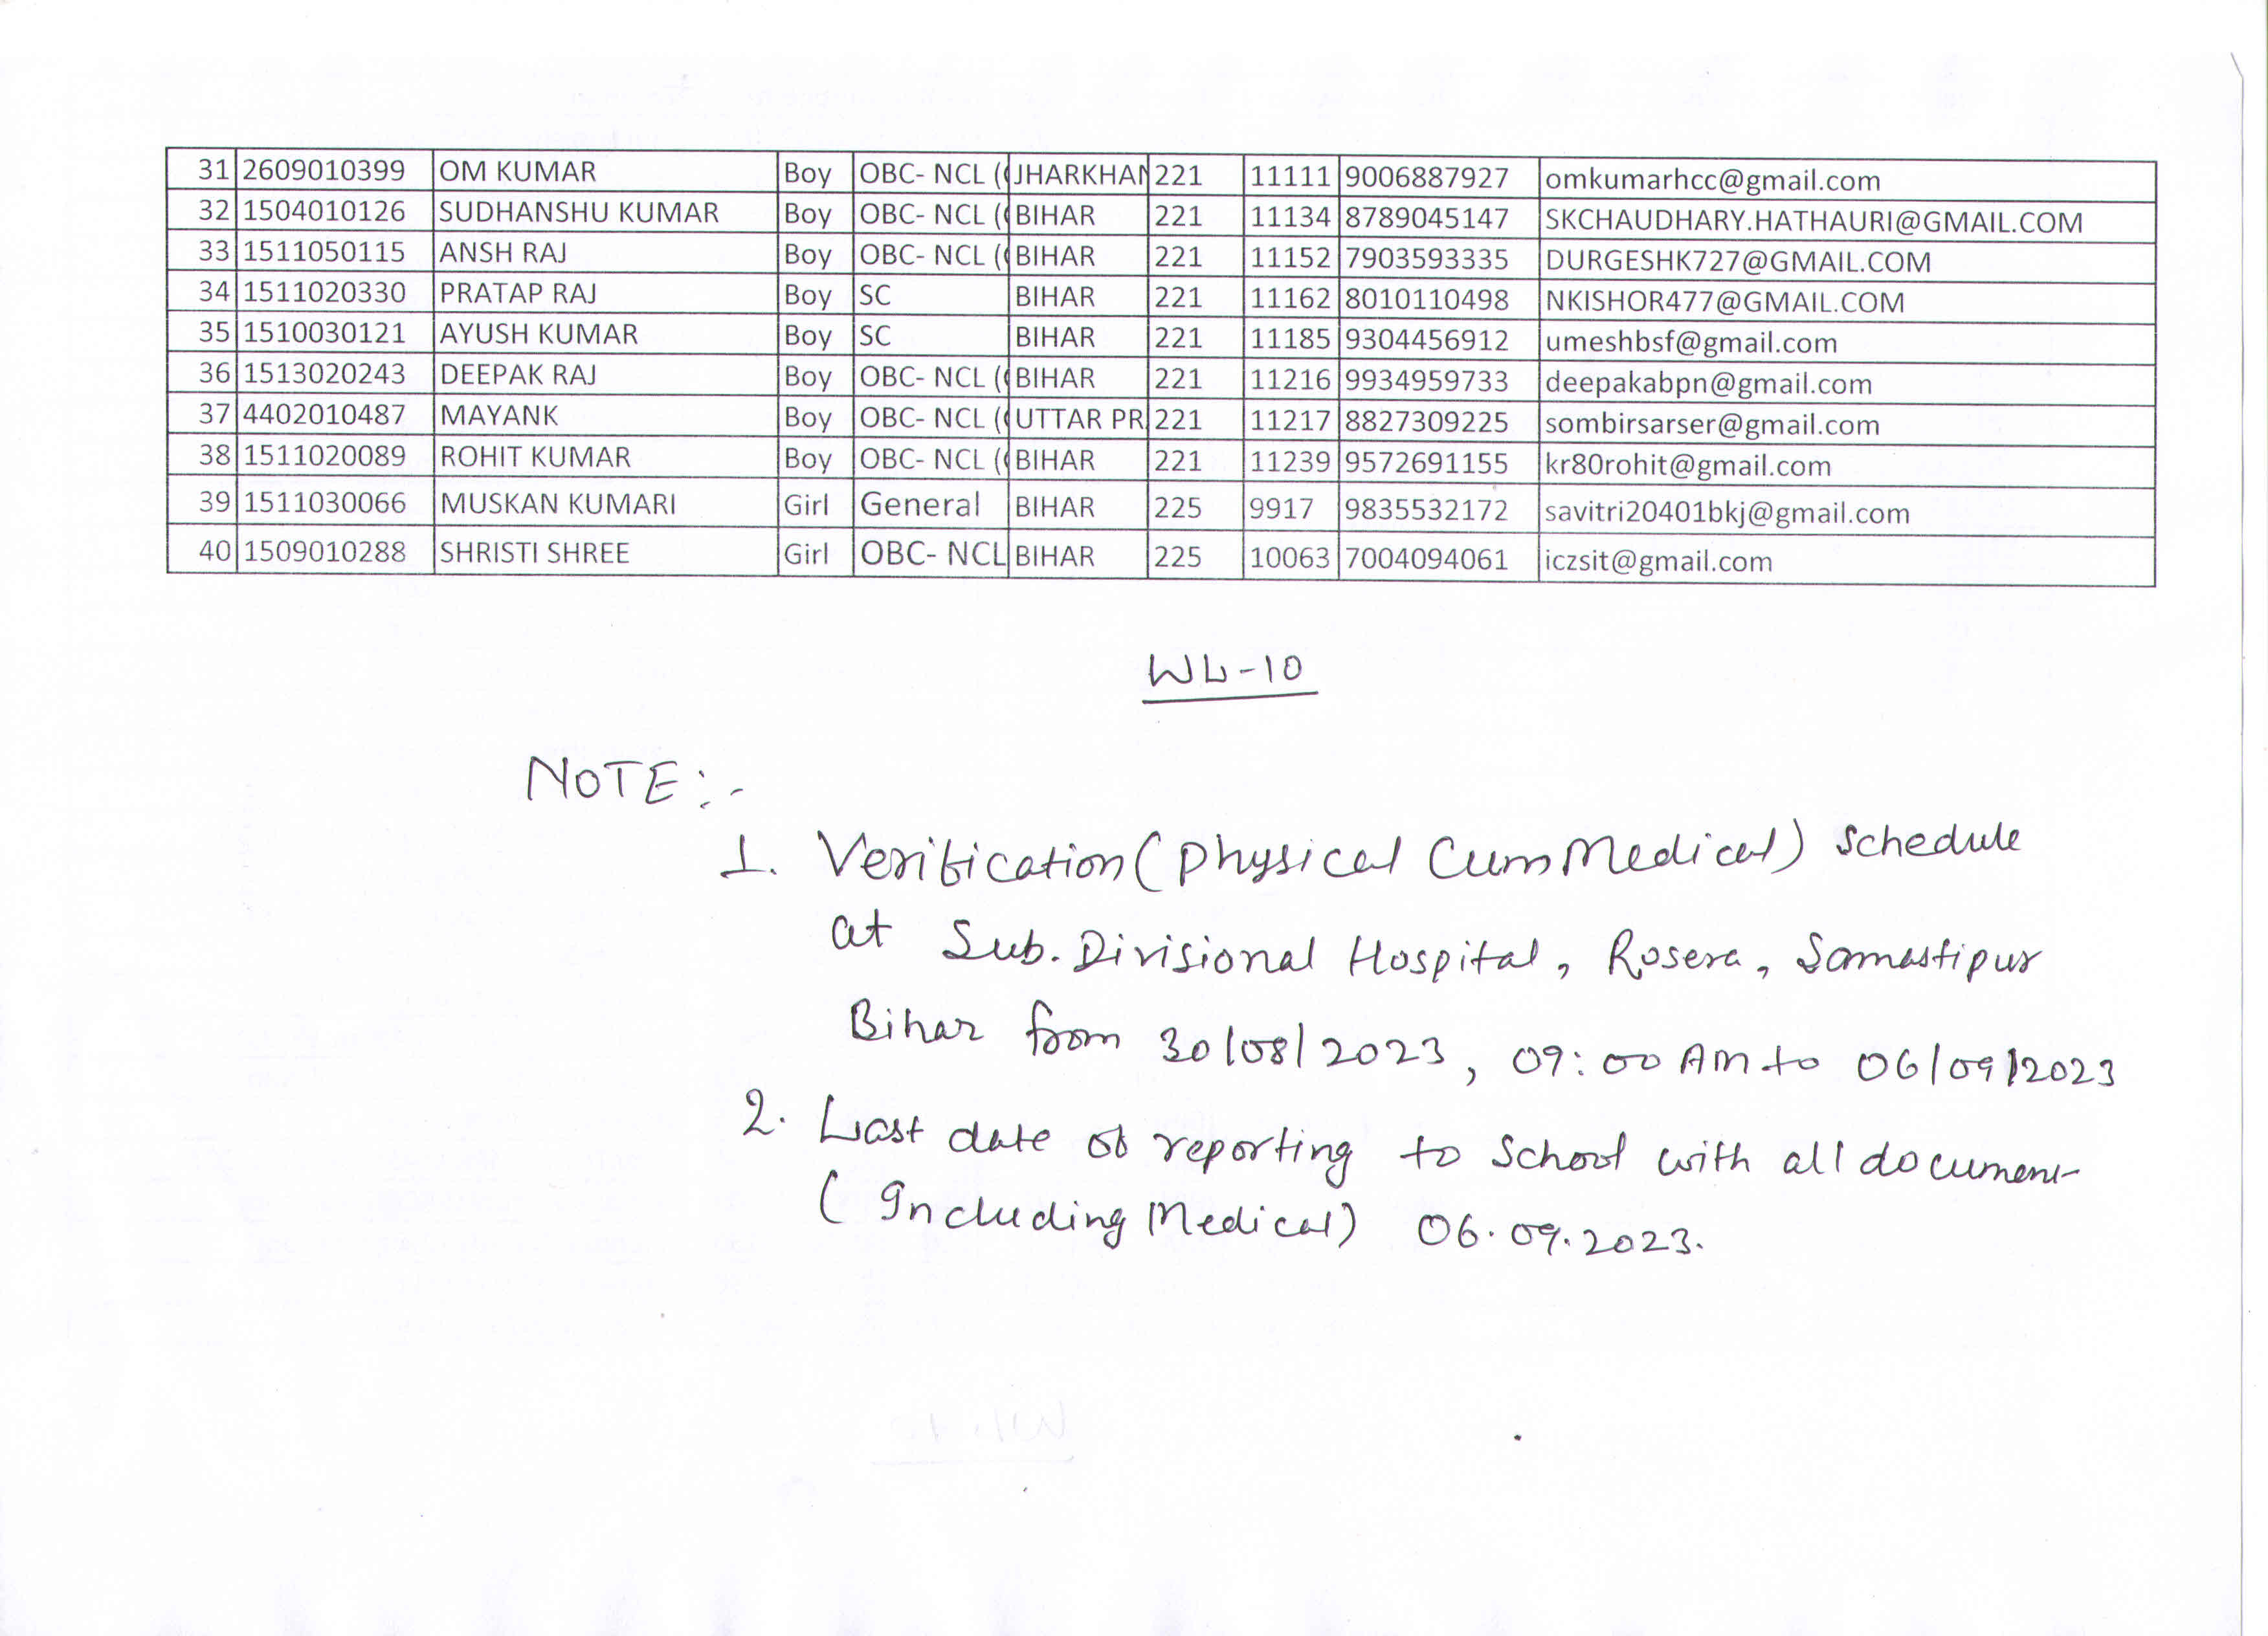 31 2609010399 OM KUMAR Boy OBC- NCL ( JHARKHAN 221 11111 9006887927 omkumarhcc@gmail.com
32 1504010126 SUDHANSHU KUMAR Boy OBC- NCL ( BIHAR 221 11134 8789045147 SKCHAUDHARY.HATHAURI@GMAIL.COM
33 1511050115 ANSH RAJ Boy OBC- NCL ( BIHAR 221 11152 7903593335 DURGESHK727@GMAIL.COM
34 1511020330 PRATAP RAJ Boy SC BIHAR 221 11162 8010110498 NKISHOR477@GMAIL.COM
35 1510030121 AYUSH KUMAR Boy SC BIHAR 221 11185 9304456912 umeshbsf@gmail.com
36 1513020243 DEEPAK RAJ Boy OBC- NCL ( BIHAR 221 11216 9934959733 deepakabpn@gmail.com
37 4402010487 MAYANK Boy OBC- NCL ( UTTAR PR 221 11217 8827309225 sombirsarser@gmail.com
38 1511020089 ROHIT KUMAR Boy OBC- NCL ( BIHAR 221 11239 9572691155 kr80rohit@gmail.com
39 1511030066 MUSKAN KUMARI Girl General BIHAR 225 9917 9835532172 savitri20401bkj@gmail.com
40 1509010288 SHRISTI SHREE Girl OBC- NCL BIHAR 225 10063 7004094061 iczsit@gmail.com
WL-10
NOTE:-
1. Verification (Physical Cum Medical) Schedule
at Sub. Divisional Hospital, Rosera, Samastipur
Bihar from 30/08/2023, 09:00 AM to 06/09/2023
2. Last date of reporting to School with all document
(Including Medical) 06.09.2023.